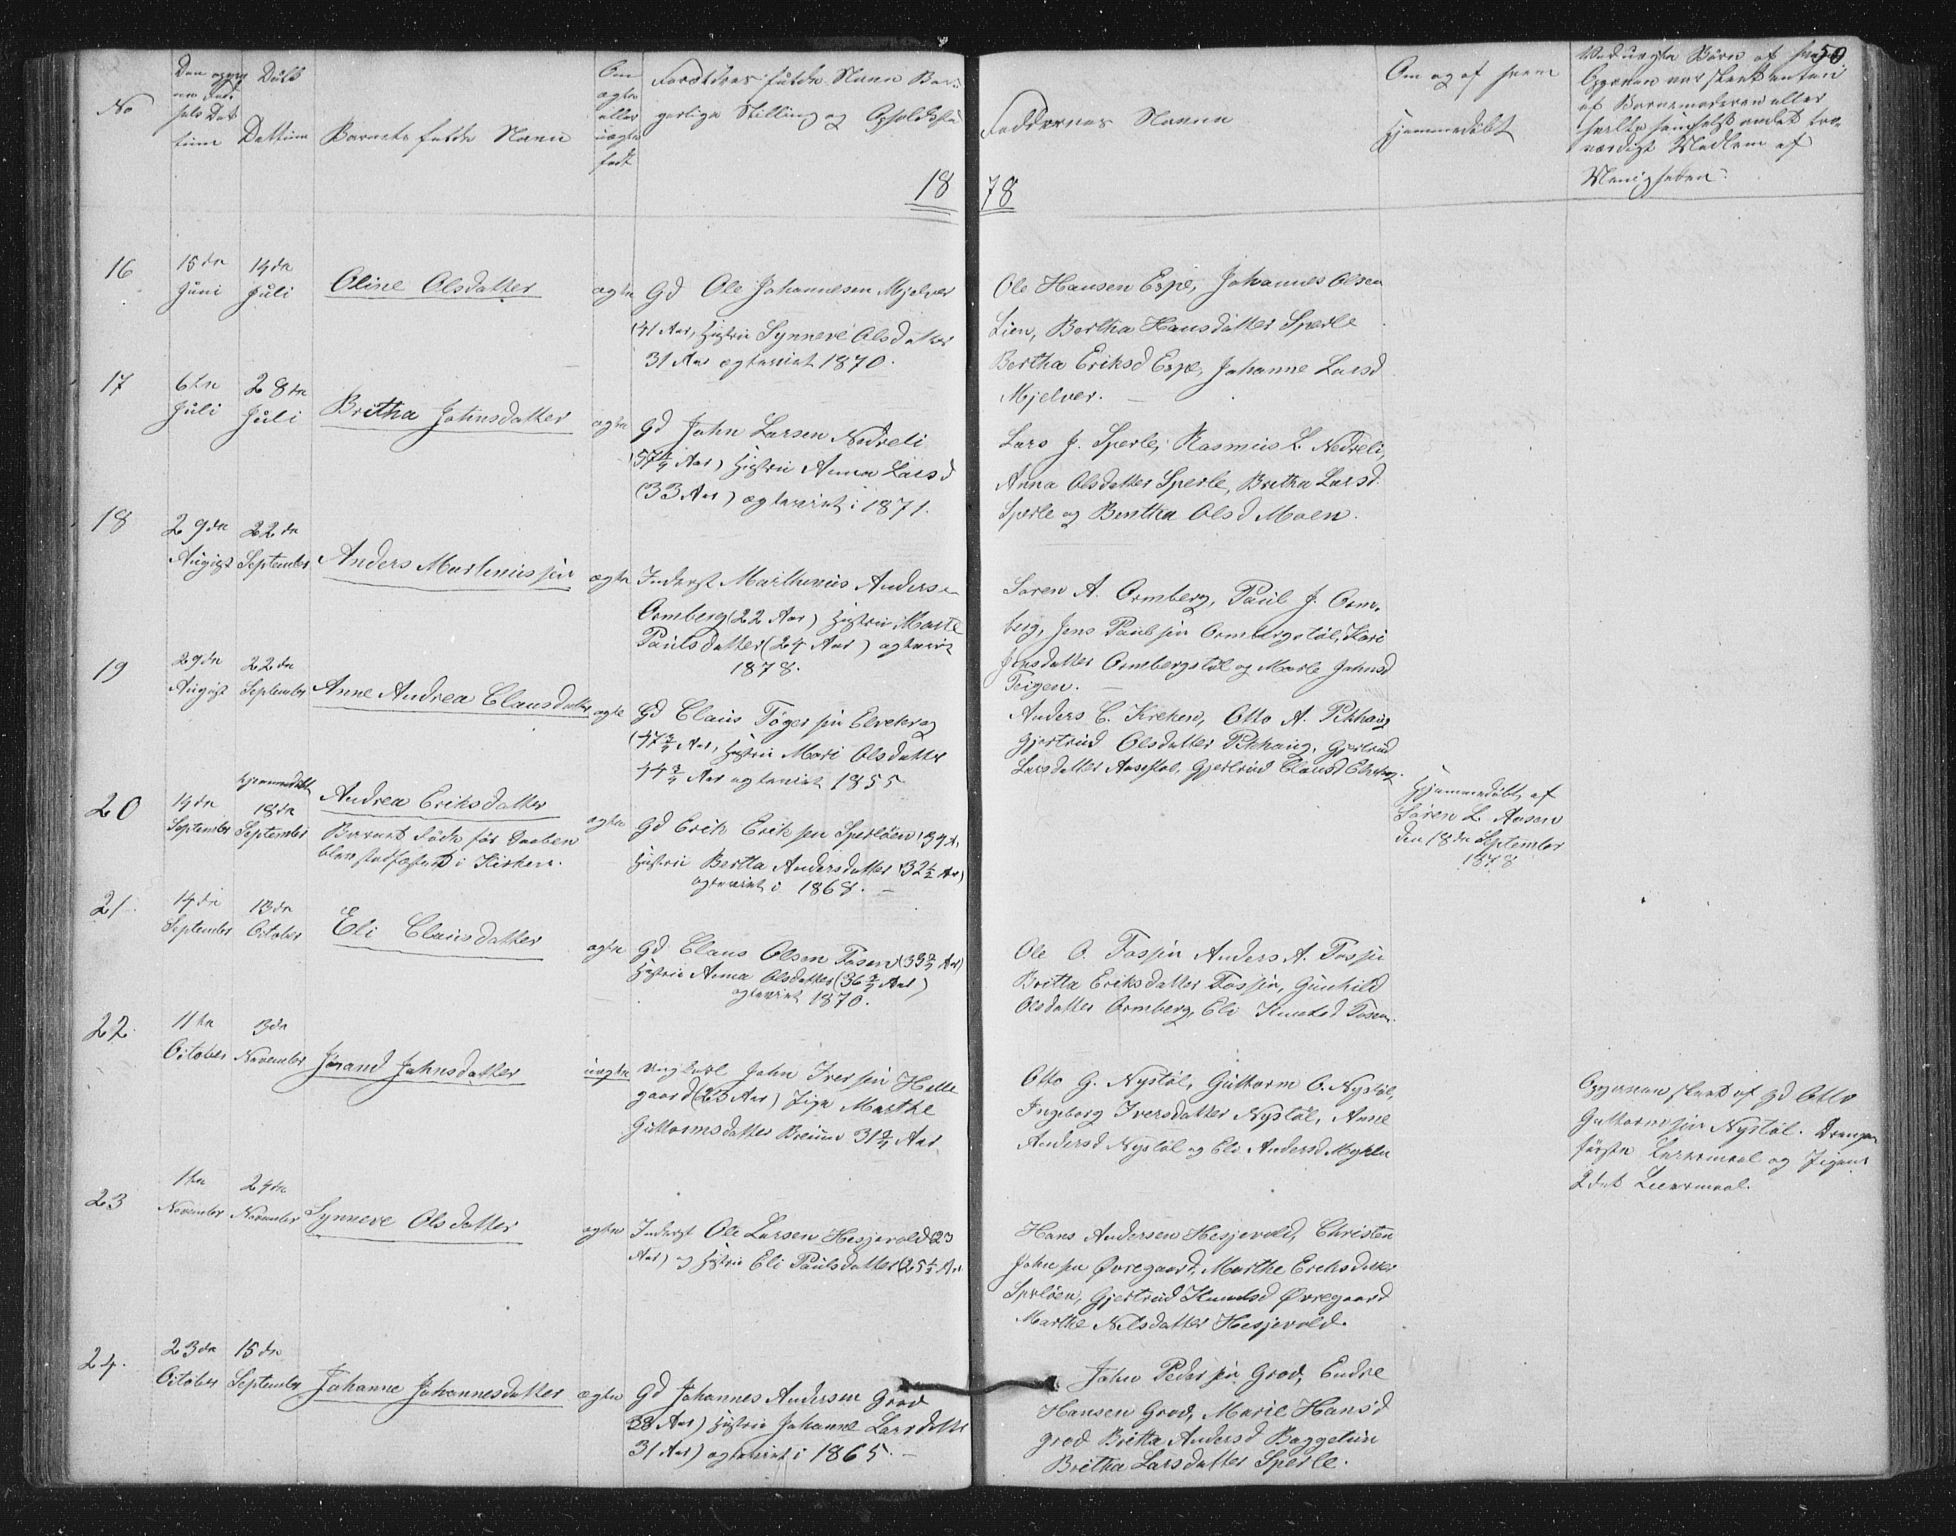 50
No
Døbt
Dattum
Barnets fulde Navn
Om
ægte
eller
uægte
født
Forældres fulde Navn Bor-
gerlige Stilling og Opholdsste
Faddernes Navne
Om og af hvem
hjemmedøbt
Ved uægte Børn af hvem
Opgaven er skeet enten
af Barnemoderen eller
Medlem af
Menigheden.
18 78
16
15de Juni
14de Juli
Oline Olsdatter
ægte
Gd Ole Johannesen Mjelver
(41 Aar, Hustru Synneve Olsdatter
31 Aar ægteviet 1870.
Ole Hansen Espe, Johannes Olsen
Lien, Bertha Hansdatter Sperle
Bertha Eriksd Espe, Johanne Larsd
Mjelver.
17
6te Juli
28de Juli
Britha Johnsdatter
ægte
Gd John Larsen Nedreli
Aar) Hustru Anna Larsd
(33 Aar) ægteviet i 1871.
Lars J. Sperle, Rasmus L. Nedreli,
Anna Olsdatter Sperle, Bretha Larsd
Sperle og Bentha Olsd Moen.
18
29de August
22de September
Anders Martinussen
ægte
Inderst Marthinus Anders
Ormberg (22 Aar) Hustru Marte
Paulsdatter (24 Aar) ægteviet
1878.
Søren A. Ormberg, Paul J. Orm-
berg, Jens Paulsen Ormbergstøl, Kari
Jensdatter Ormbergstøl og Marte Johnsd
Teigen.
19
29de August
22de September
Anne Andrea Clausdatter
ægte
Gd Claus Tøgersen Elvekrog
(47 Aar, Hustru Mari Olsdatter
44 Aar ægteviet 1855
Anders C. Kreken, Otto A. Pikhaug
Gjertrud Olsdatter Pikhaug, Gjertrud
Larsdatter Aasestøl, Gjertrud Clausd
20
14de September
hjemmedøbt
18de September
Andrea Eriksdatter
Barnet døde før Daaben
blev stadfæstet i Kirken.
ægte
Gd Erik Eriksen Sperløen (39 A.
Hustru Bertha Andersdatter (32½ Aar)
ægteviet i 1868.
Hjemmedøbt af
Søren L. Aasen
den 18de September
1878
21.
14de September
13de October
Eli Clausdatter
ægte
Gd Claus Olsen Fosen (33 Aar)
Hustru Anna Olsdatter (36 Aar)
ægteviet 1870.
Ole O. Fossen Anders A. Fossen
Britta Eriksdatter Fossen, Gunhild
Olsdatter Ormberg, Eli Knutsd Fosen.
22.
11te October
3de November
Jorand Johnsdatter
uægte
Ungkarl John Iversen Helle
gaard (23 Aar) Pige Marthe
Guttormsdatter Breum 31 Aar
Otto G. Nystøl, Guttorm O. Nystøl,
Ingeborg Iversdatter Nystøl, Anne
Andersd Nystøl og Eli Andersd Myklen
Opgaven skeet af Gd Otto
Guttormsen Nystøl. Drengens
første Leiermaal og Pigens
2det Leiermaal.
23
1te November
24de November
Synneve Olsdatter
ægte
Inderst Ole Larsen Hesjevold (23
Aar) og Hustru Eli Paulsdatter (25½ Aar
Hans Andersen Hesjevold, Christen
Johnsen Øvregaard, Marthe Eriksdatter
Sperløen, Gjertrud Knudsd Øvregaard
Marthe Nilsdatter Hesjevold.
24.
23de October
15de September
Johanne Johannesdatter
ægte
Gd Johannes Andersen Grov
38 Aar) Hustru Johanne Larsdatter
31 Aar) ægteviet i 1865.
John Pedersen Grov, Endre
Hansen Grov, Marie Hansd
Grov Britta Andersd Baggetun
Bretha Larsdatter Sperle.